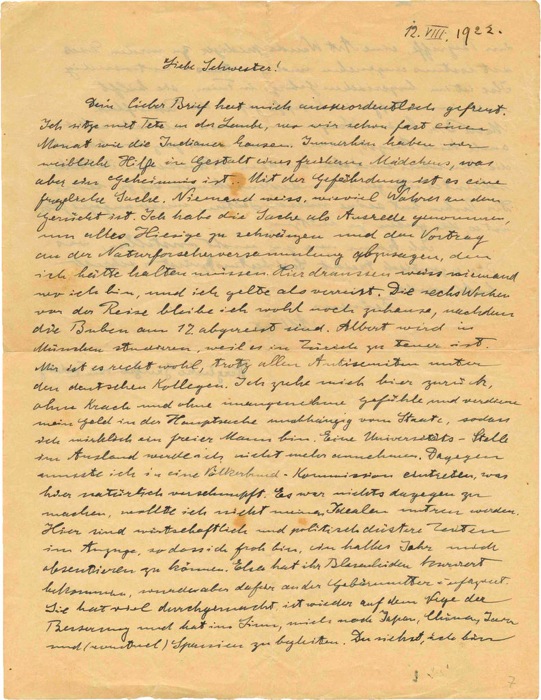 12. VIII. 1922.
Liebe Schwester!
Dein lieber Brief hat mich ausserordentlich gefreut.
Ich sitze mit Tete in der Laube, wo wir schon fast einen
Monat wie die Indianer hausen. Immerhin haben wir
weibliche Hilfe in Gestalt eines früheren Mädchens, was
aber ein Geheimnis ist. Mit der Gefährdung ist es eine
fragliche Sache. Niemand weiss, wieviel Wahres an dem
Gerücht ist. Ich habe die Sache als Ausrede genommen,
um alles Hiesige zu schwänzen und den Vortrag
an der Naturforscherversammlung abzusagen, den
ich hätte halten müssen. Hier draussen weiss niemand
wo ich bin, und ich gelte als verreist. Die sechs Wochen
vor der Reise bleibe ich wohl noch zuhause, nachdem
die Buben am 17. abgereist sind. Albert wird in
München studieren, weil es in Zürich zu teuer ist.
Mir ist es recht wohl, trotz allen Antisemiten unter
den deutschen Kollegen. Ich ziehe mich hier zurück,
ohne Krach und ohne unangenehme Gefühle und verdiene
mein Geld in der Hauptsache unabhängig vom Staate, sodass
ich wirklich ein freier Mann bin. Eine Universitäts-Stelle
im Ausland werde ich nicht mehr annehmen. Dagegen
musste ich in eine Völkerbund-Kommission eintreten, was
hier natürlich verschnupft. Es war nichts dagegen zu
machen, wollte ich nicht meinen Idealen untreu werden.
Hier sind wirtschaftlich und politisch düstere Zeiten
im Anzuge, sodass ich froh bin, ein halbes Jahr mich
absentieren zu können. Elsa hat ihr Blasenleiden kuriert
bekommen, wurde aber dafür an der Gebärmutter infiziert.
Sie hat viel durchgemacht, ist wieder auf dem Wege der
Besserung und hat im Sinn, mich nach Japan, China, Java
und (eventuel) Spanien zu begleiten. Du siehst, ich bin
7